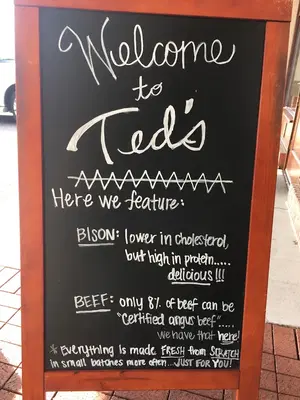 Welcome
to
Ted's
Here we feature:
BISON: lower in cholesterol,
but high in protein.....
delicious!!!
BEEF: only 8% of beef can be
"Certified angus beef".....
we have that here!
* Everything is made FRESH from SCRATCH
in small batches more often...JUST FOR YOU!